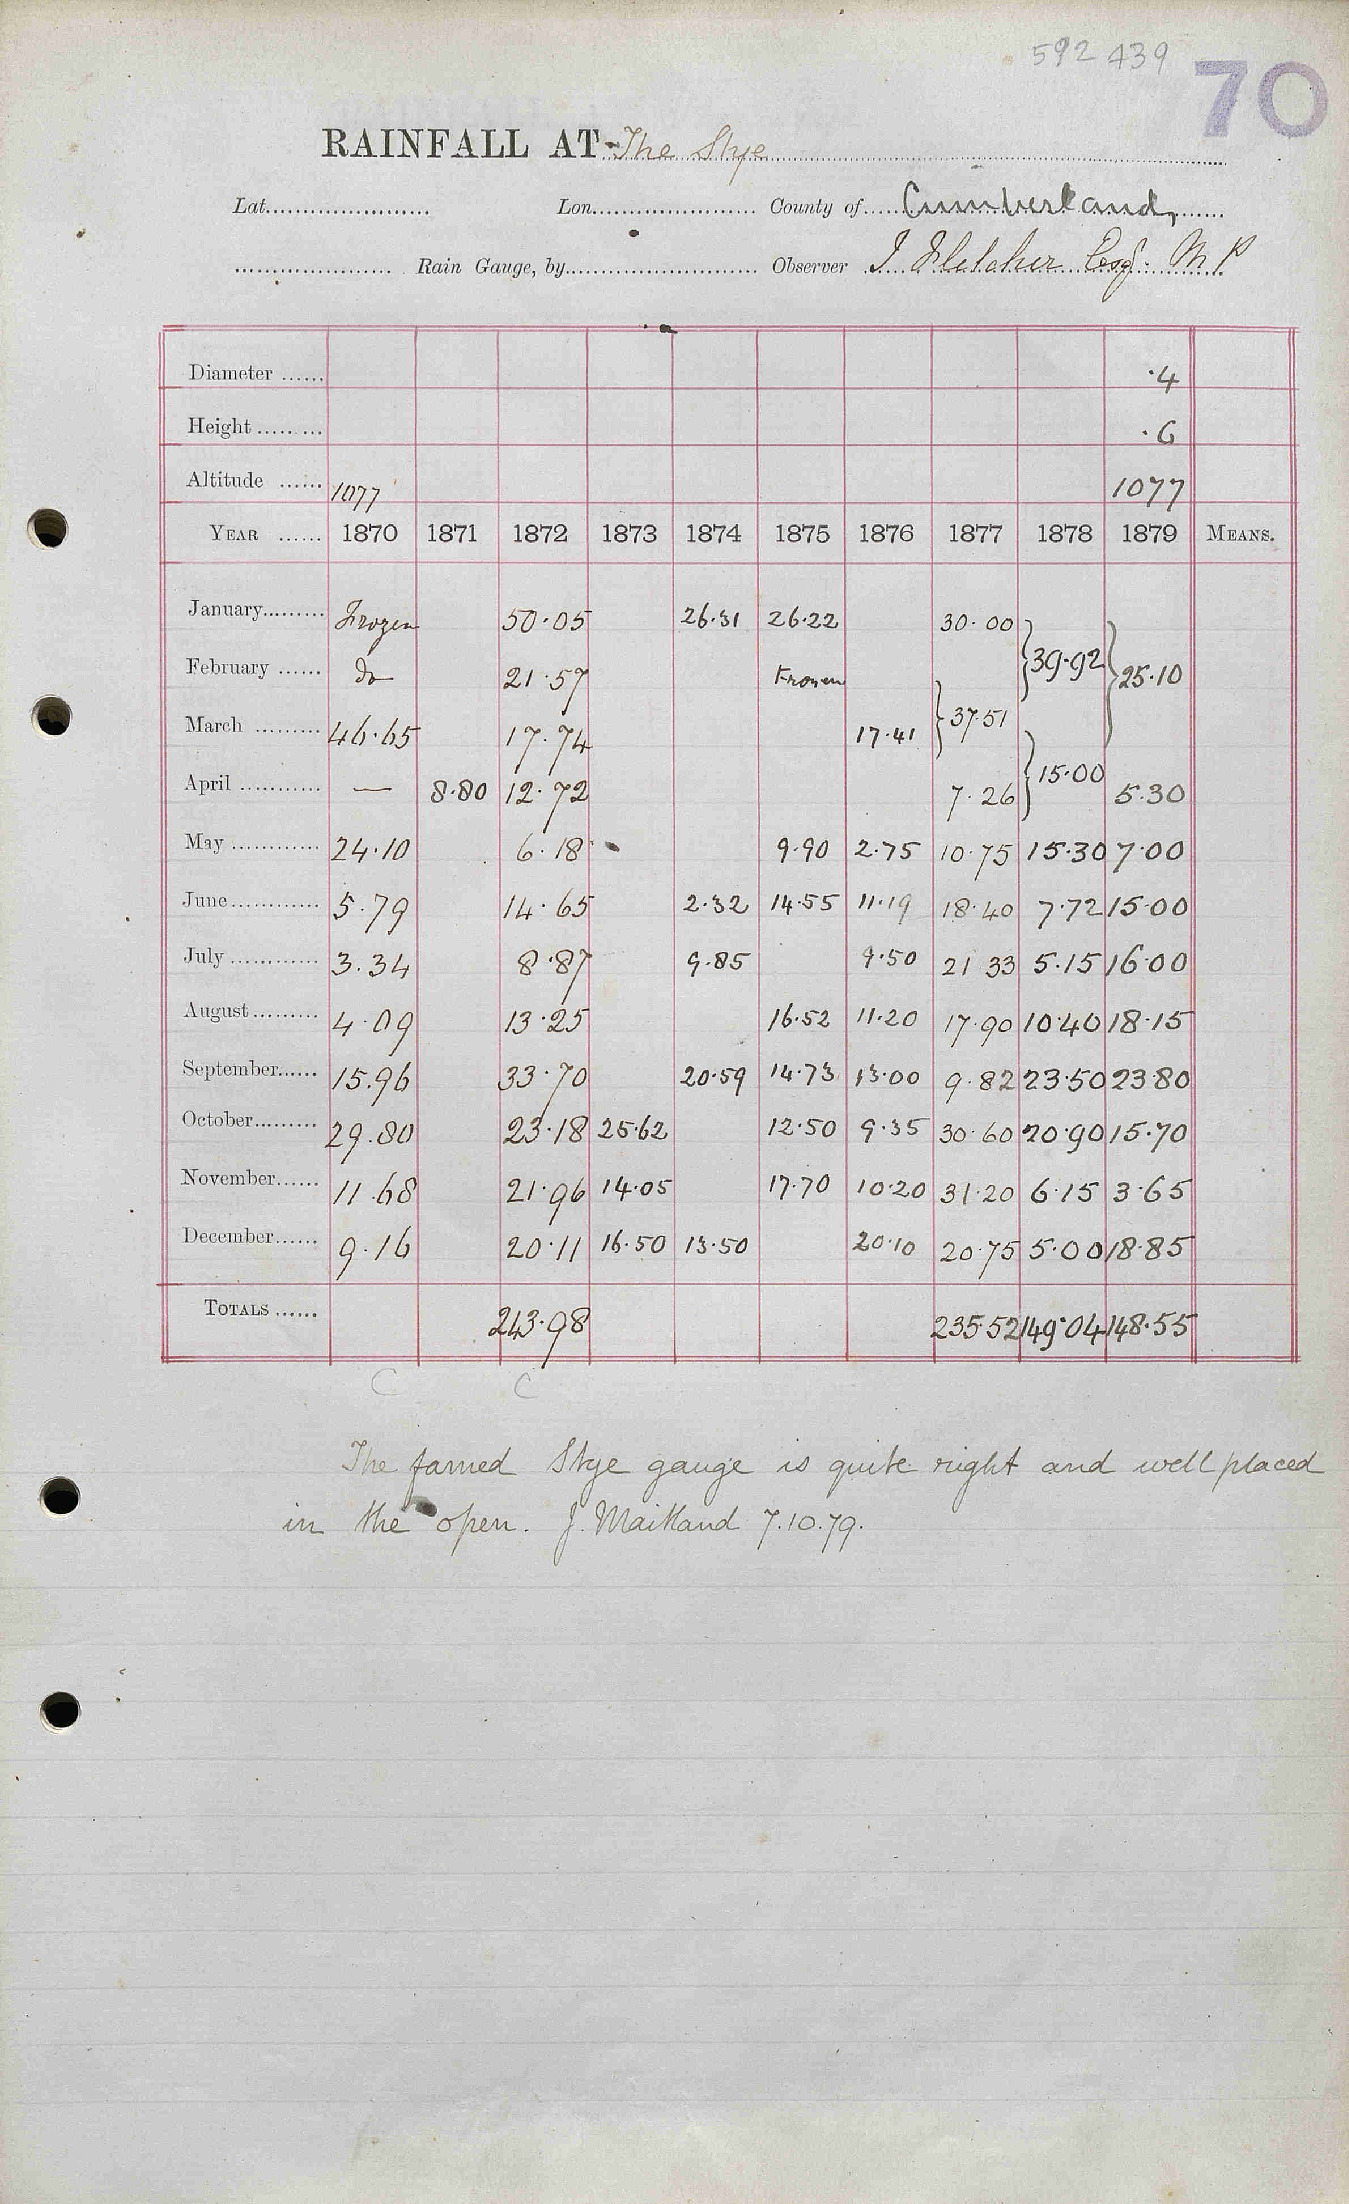 592 439
70
RAINFALL AT The Stye
Lat. Lon. County of Cumberland,
Rain Gauge, by Observer I Fletcher Esq. M P
Diameter ...... ·4
Height ...... ·6
Altitude ...... 1077 1077
YEAR ...... 1870 1871 1872 1873 1874 1875 1876 1877 1878 1879 MEANS.
January Frozen 50·05 26·31 26·22 30·00
February do 21·57 Frozen 39·92 25·10
March 46·65 17·74 17·41 37·51
April — 8·80 12·72 7·26 15·00 5·30
May 24·10 6·18 9·90 2·75 10·75 15·30 7·00
June 5·79 14·65 2·32 14·55 11·19 18·40 7·72 15·00
July 3·34 8·87 9·85 9·50 21 33 5·15 16·00
August 4·09 13·25 16·52 11·20 17·90 10·40 18·15
September 15·96 33·70 20·59 14·73 13·00 9·82 23·50 23·80
October 29·80 23·18 25·62 12·50 9·35 30·60 20·90 15·70
November 11·68 21·96 14·05 17·70 10·20 31·20 6·15 3·65
December 9·16 20·11 16·50 13·50 20·10 20·75 5·00 18·85
TOTALS 243·98 235·52 149·04 148·55
C C
The famed Stye gauge is quite right and well placed
in the open. J. Maitland 7.10.79.